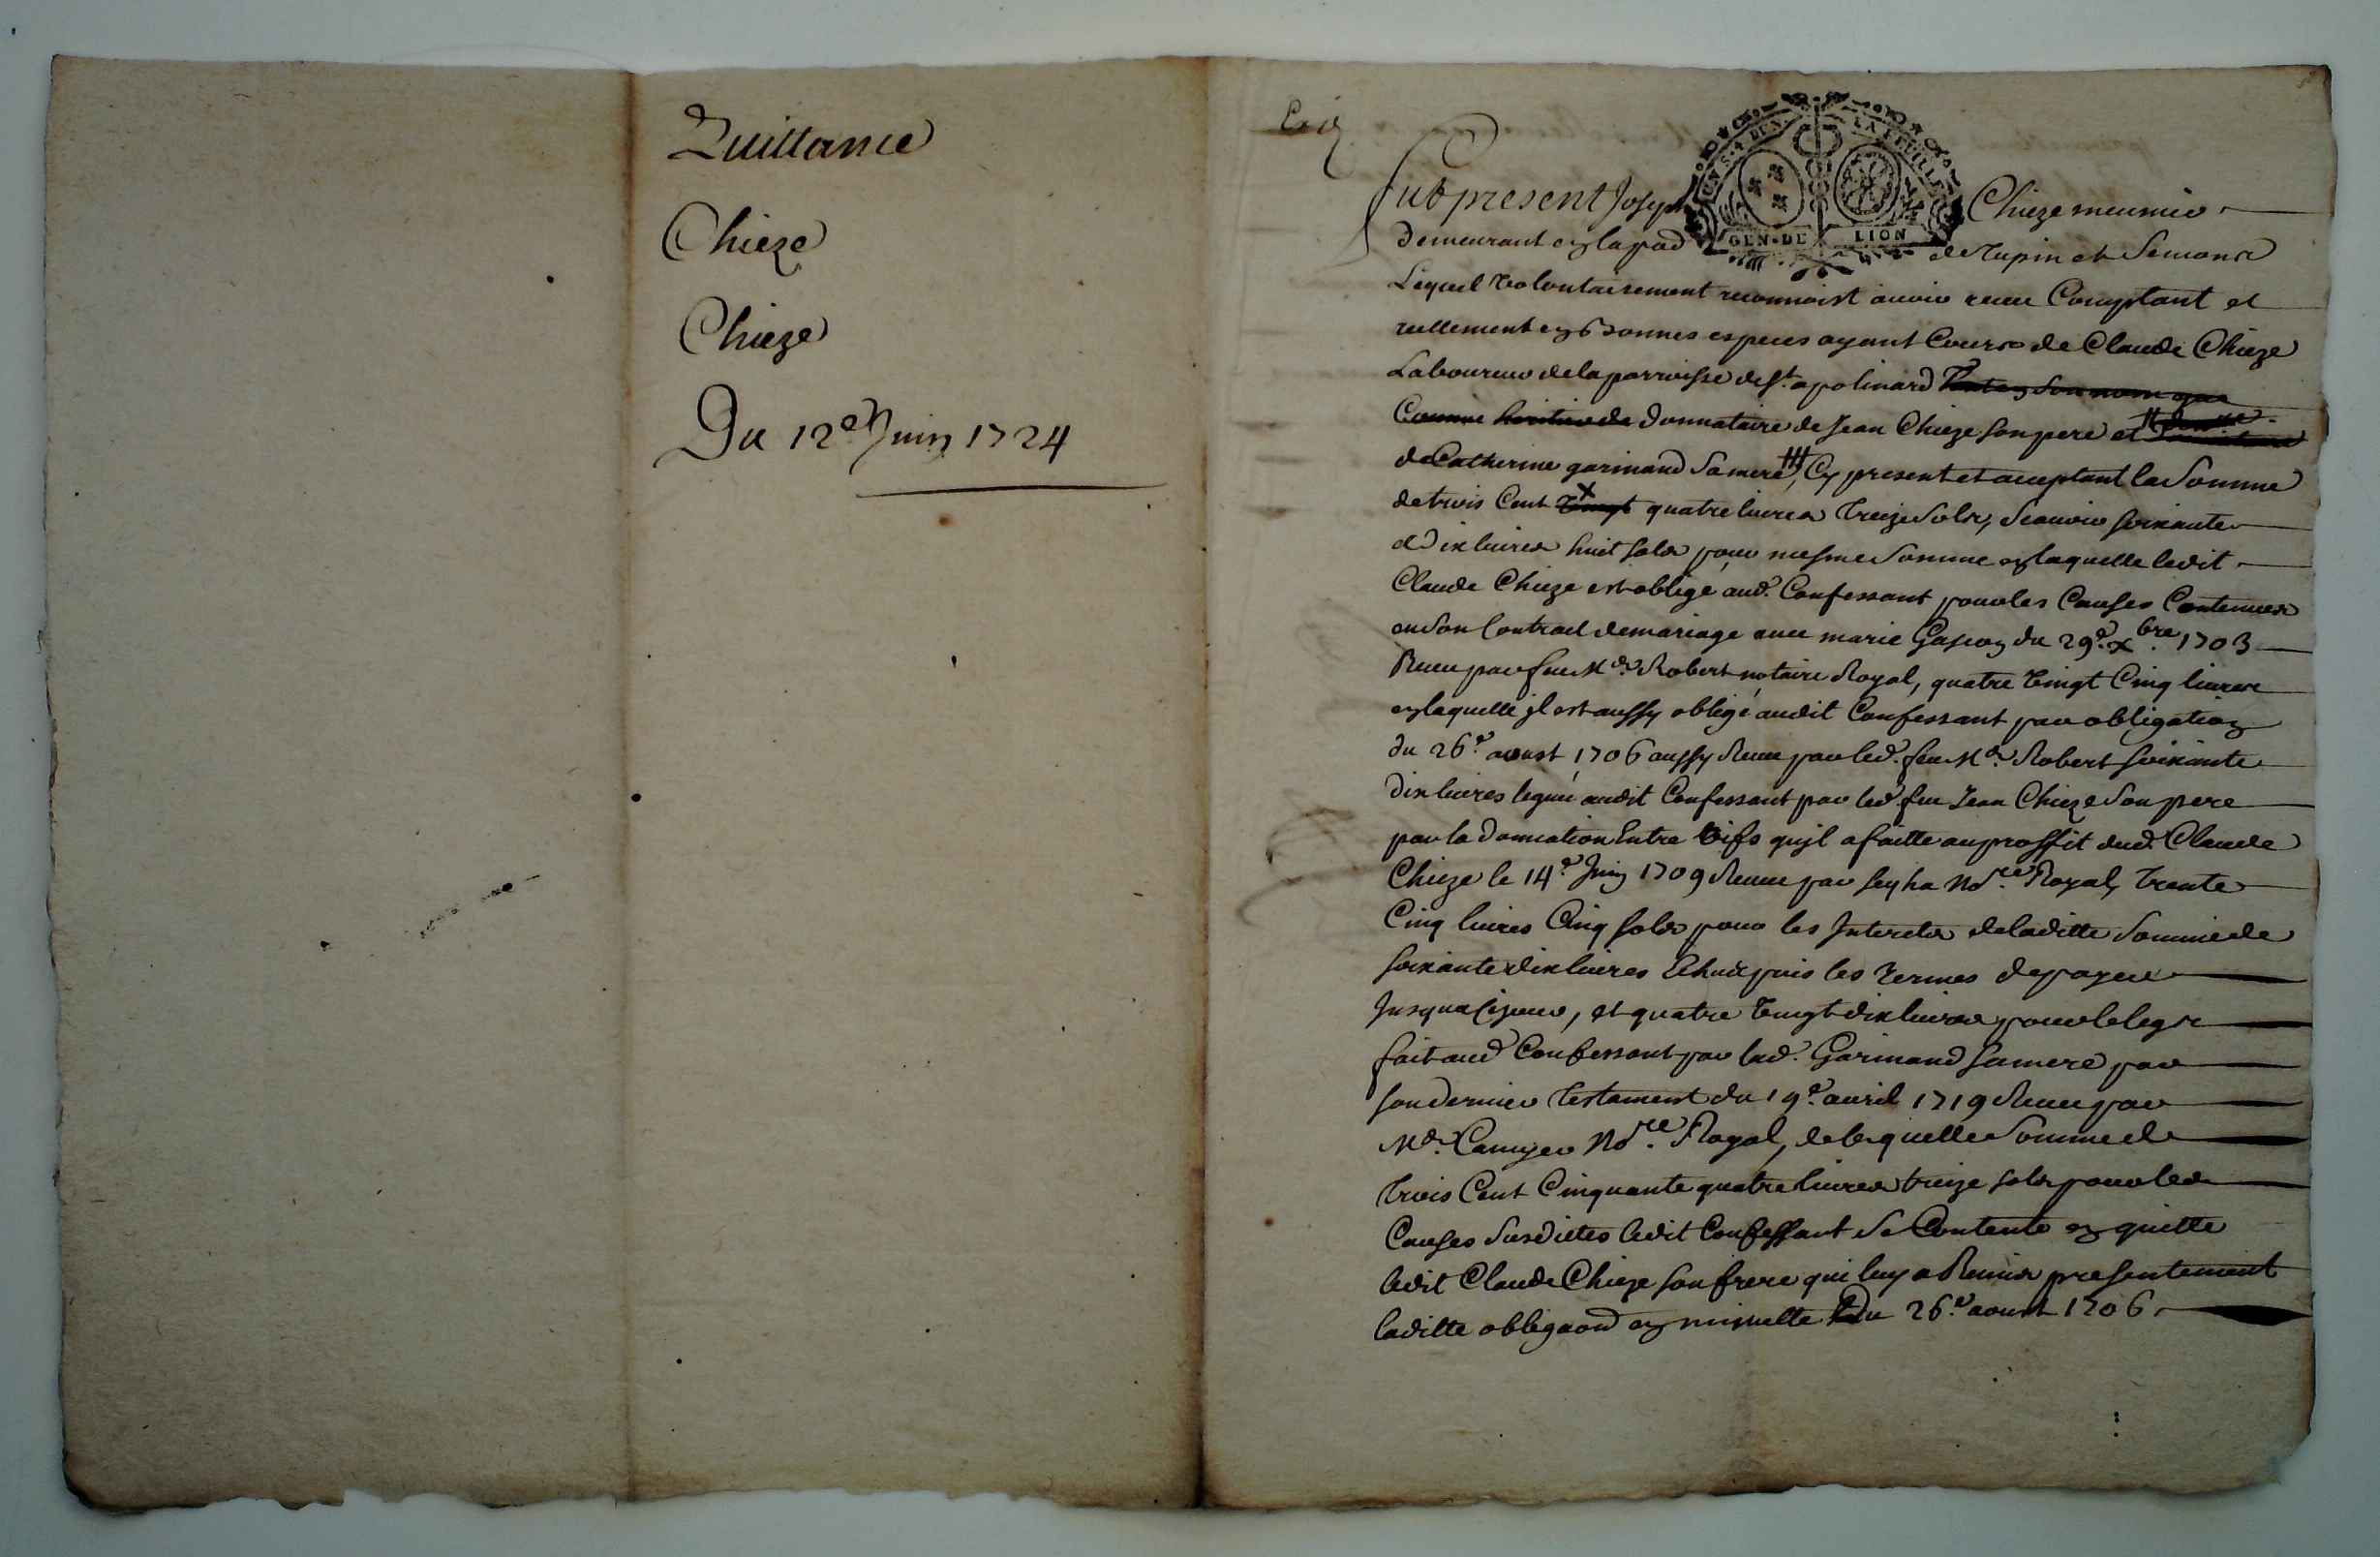 Quittance
Chieze
Chieze
Du 12e Juin 1724
Fut present Joseph Chieze meunier
UN S. 4 D. UN. LA FEUILLE
GEN. DE LION
demeurant en la par de Tupin et Semons
Lequel volontairement reconnoist auoir receu Comptant et
reellement en bonnes especes ayant Cours de Claude Chieze
Laboureur de la parroisse de St. apolinard tant en son nom que
Comme heritier de donnataire de Jean Chieze son pere et #
de Catherine garinand Sa mere ### Cy present et acceptant la Somme
de trois Cent vingt x quatre liures Treize Sols, Scauoir soixante
et dix liures huit sols pour mesme Somme en laquelle ledit
Claude Chieze est obligé aud. Confessant pour les Causes Contenues
en son Contract de mariage auec marie Gascon du 29e. xbre. 1703
Receu par feu Me. Robert notaire Royal, quatre vingt Cinq liures
en laquelle jl est aussy obligé audit Confessant par obligation
du 26e. aoust 1706 aussy Receue par led. feu Me. Robert soixante
dix liures legué audit Confessant par led. feu Jean Chieze Son pere
par la donnation Entre vifs qu'jl a faitte au proffit dud. Claude
Chieze le 14e. Juin 1709 Receue par Nore. Royal, trente
Cinq liures Cinq sols pour les Jnterets de laditte Somme de
soixante dix liures Echeux puis les termes de payer
Jusqu'a Ce jour, et quatre vingt dix liures pour le legs
fait aud. Confessant par lad. Garinand Sa mere par
son dernier testament du 19e. auril 1719 Receu par
Me. Nore. Royal, de laquelle Somme de
trois Cent Cinquante quatre liures treize sols pour les
Causes Susdittes ledit Confessant Se Contente en quitte
ledit Claude Chieze son frere qui luy a Remis presentement
laditte obligaon en minutte Du 26e. aoust 1706